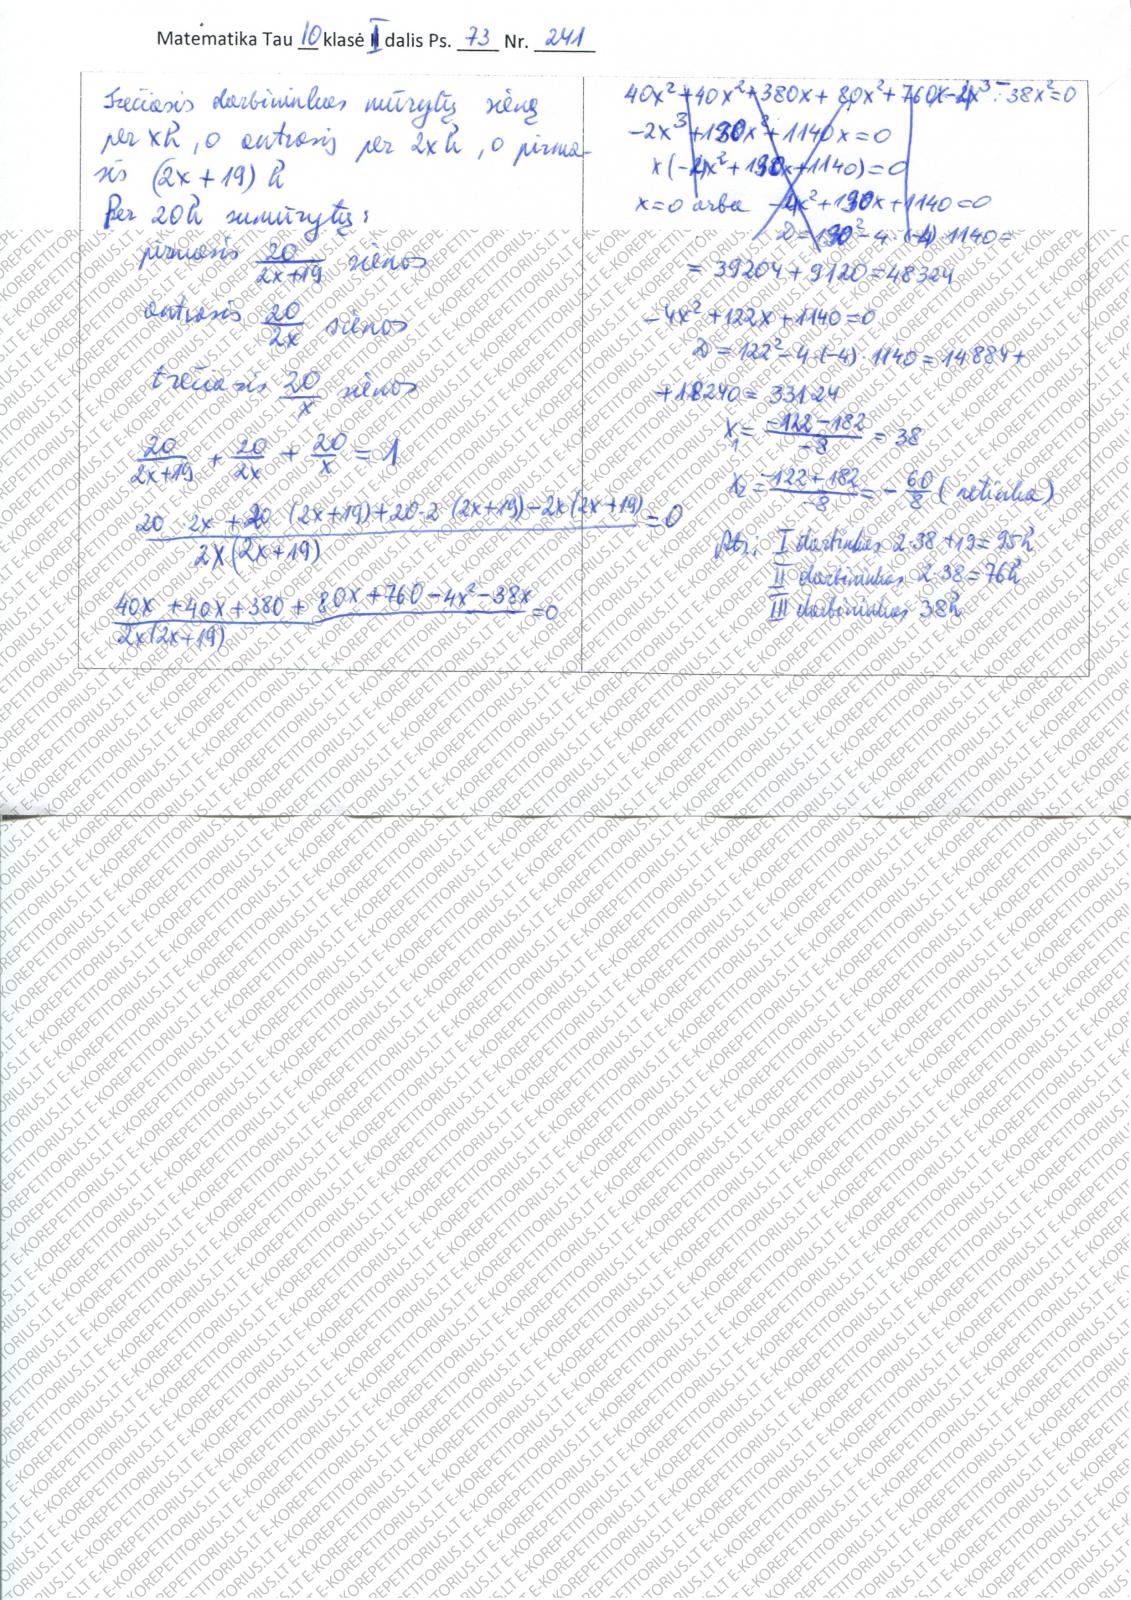 Matematika Tau 10 klasė I dalis Ps. 73 Nr. 241
Trečiasis darbininkas mūrytų sieną
per xh, o antrasis per 2xh, o pirma-
sis (2x+19) h
Per 20h sumūrytų:
pirmasis 20/(2x+19) sienos
antrasis 20/2x sienos
trečiasis 20/x sienos
20/(2x+19) + 20/2x + 20/x = 1
(20 · 2x + 20 (2x+19) + 20·2 (2x+19) - 2x(2x+19)) / (2x(2x+19)) = 0
(40x + 40x + 380 + 80x + 760 - 4x² - 38x) / (2x(2x+19)) = 0
40x² + 40x² + 380x + 80x² + 760x - 4x³ - 38x² = 0
-2x³ + 190x² + 1140x = 0
x = 0 arba
= 39204 + 9120 = 48324
-4x² + 122x + 1140 = 0
D = 122² - 4·(-4)·1140 = 14884 +
+ 18240 = 33124
x₁ = (-122 - 182)/(-8) = 38
x₂ = (-122 + 182)/(-8) = - 60/8 (netinka)
Ats.: I darbinkas 2·38 + 19 = 95h
II darbininkas 2·38 = 76h
III darbininkas 38h
E-KOREPETITORIUS.LT